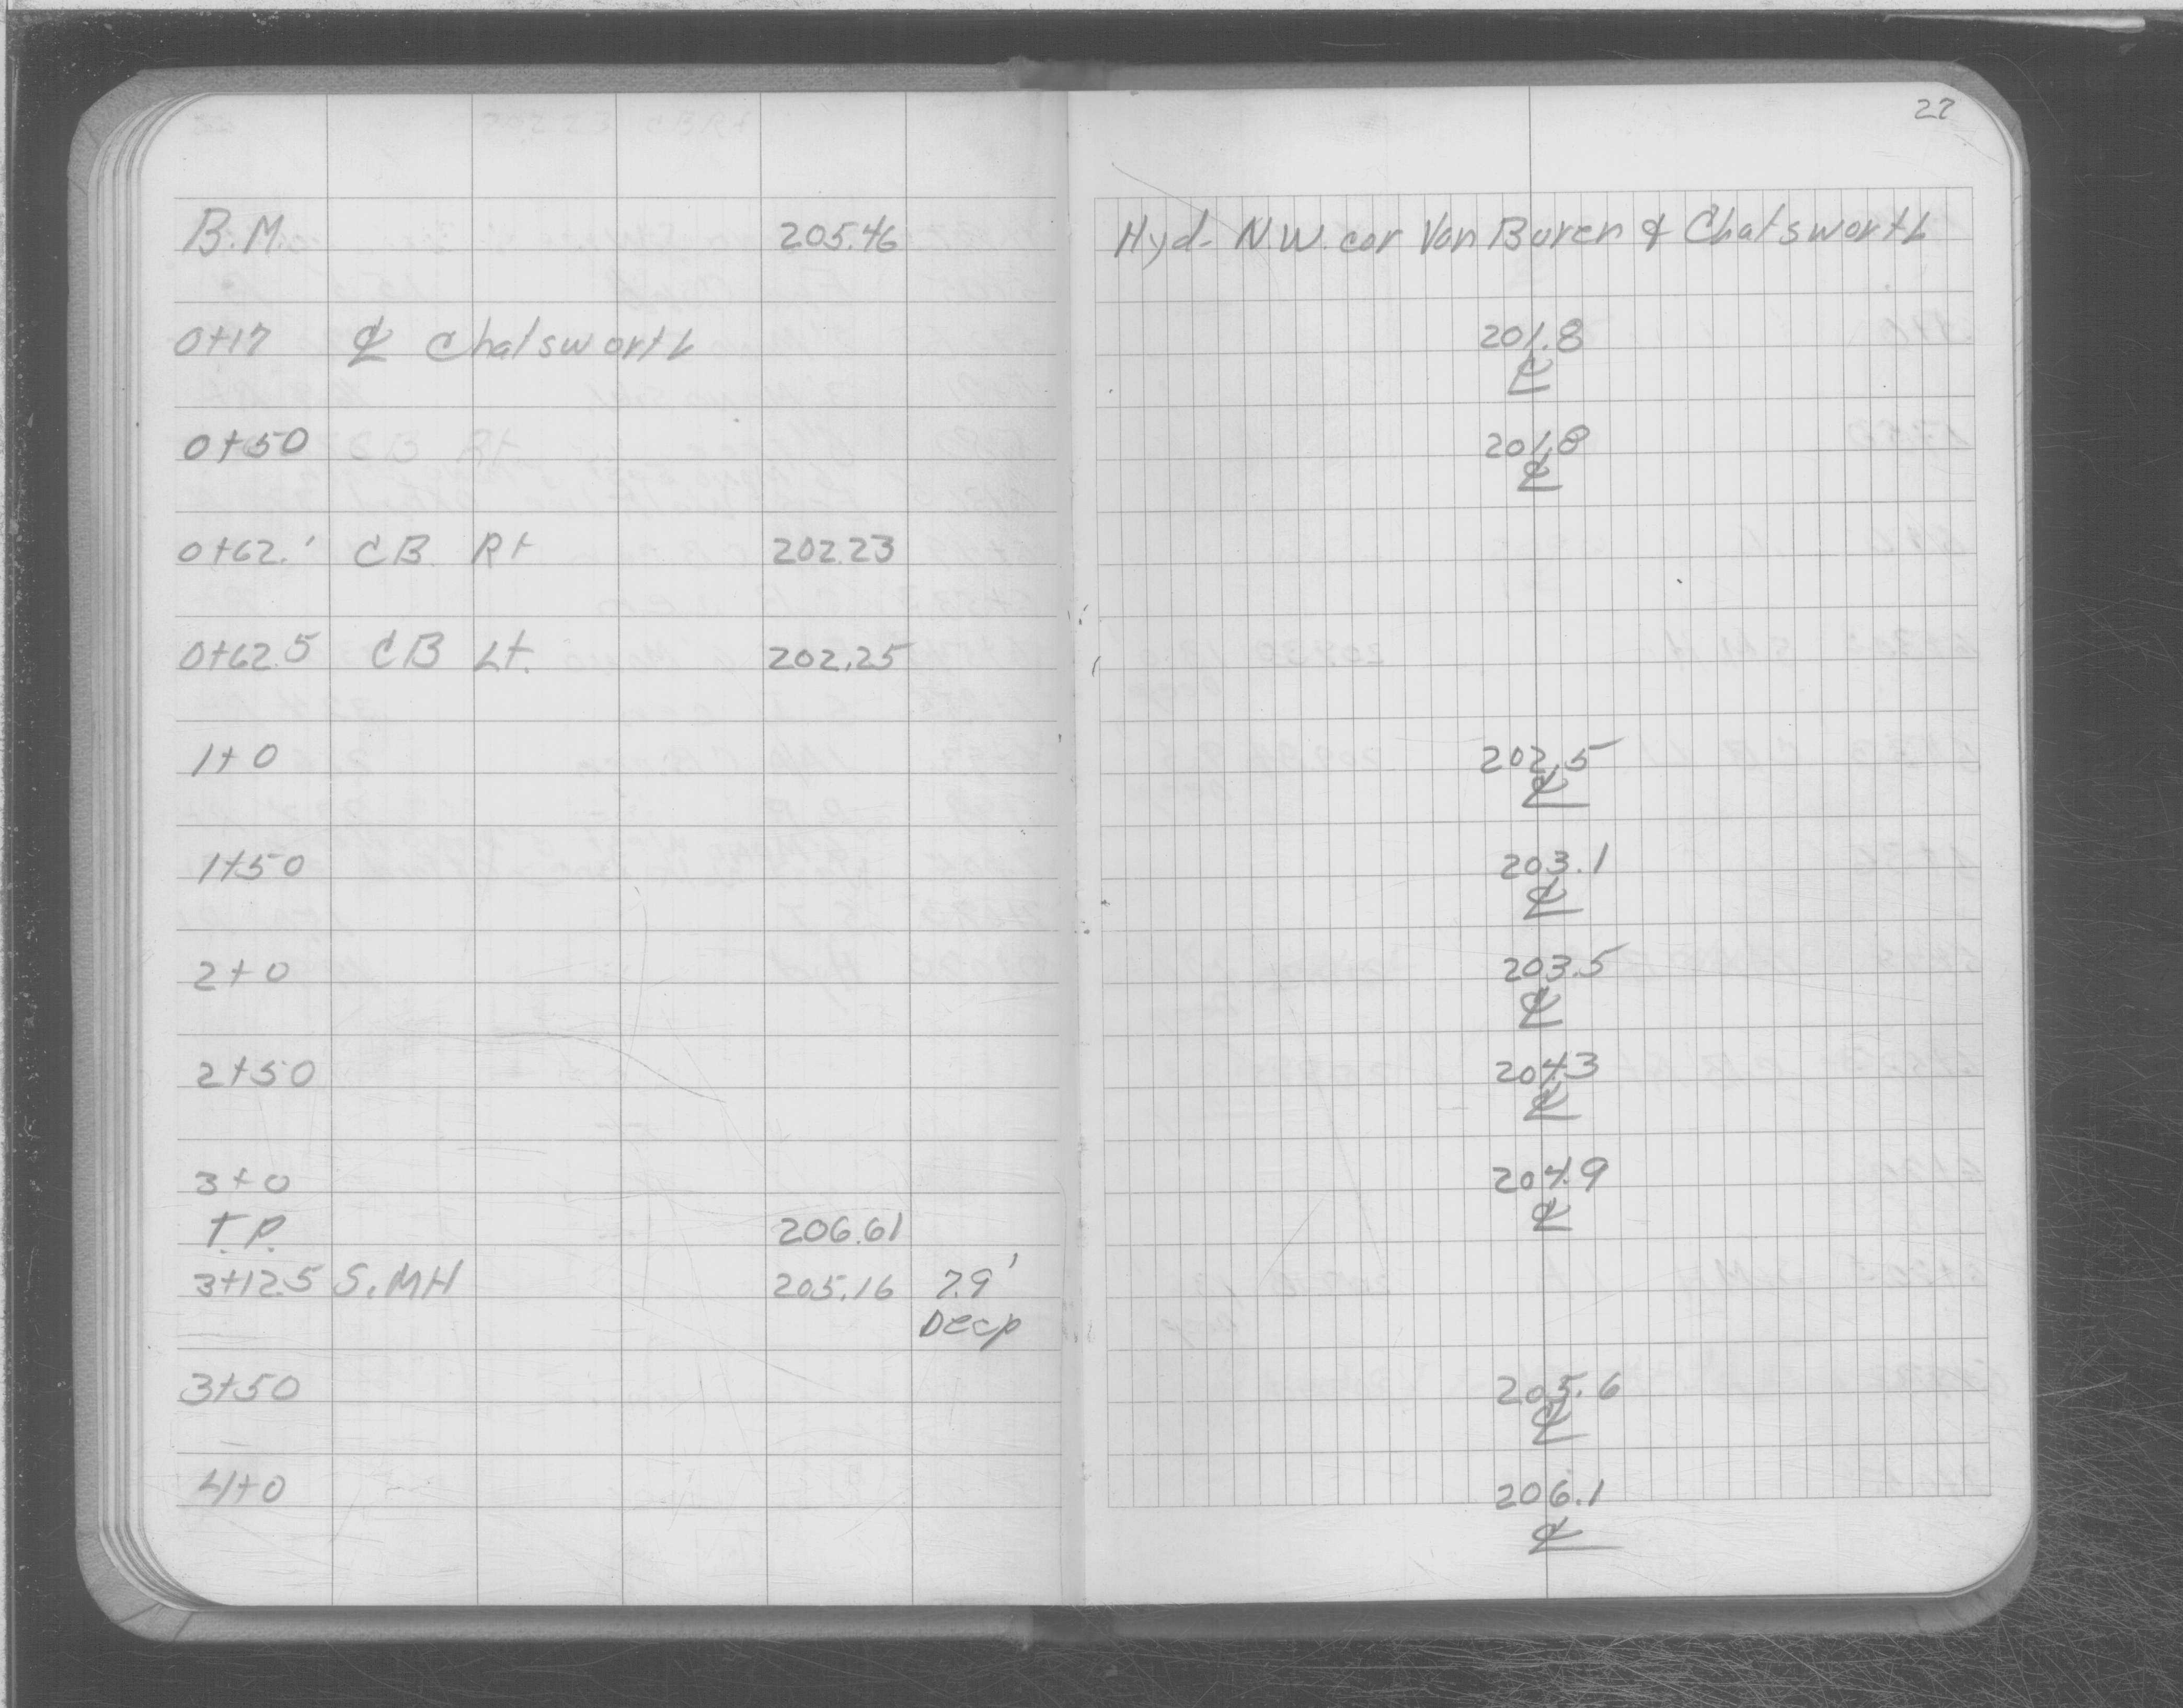 22
B.M. 205.46 Hyd- NW. cor Van Buren & Chatsworth
0+17 ℄ Chatsworth 201.8
℄
0+50 201.8
℄
0+62.' CB Rt 202.23
0+62.5 CB Lt. 202.25
1+0 202.5
℄
1+50 203.1
℄
2+0 203.5
℄
2+50 204.3
℄
3+0 204.9
T.P. 206.61 ℄
3+12.5 S.MH 205.16 7.9'
Deep
3+50 205.6
℄
4+0 206.1
℄